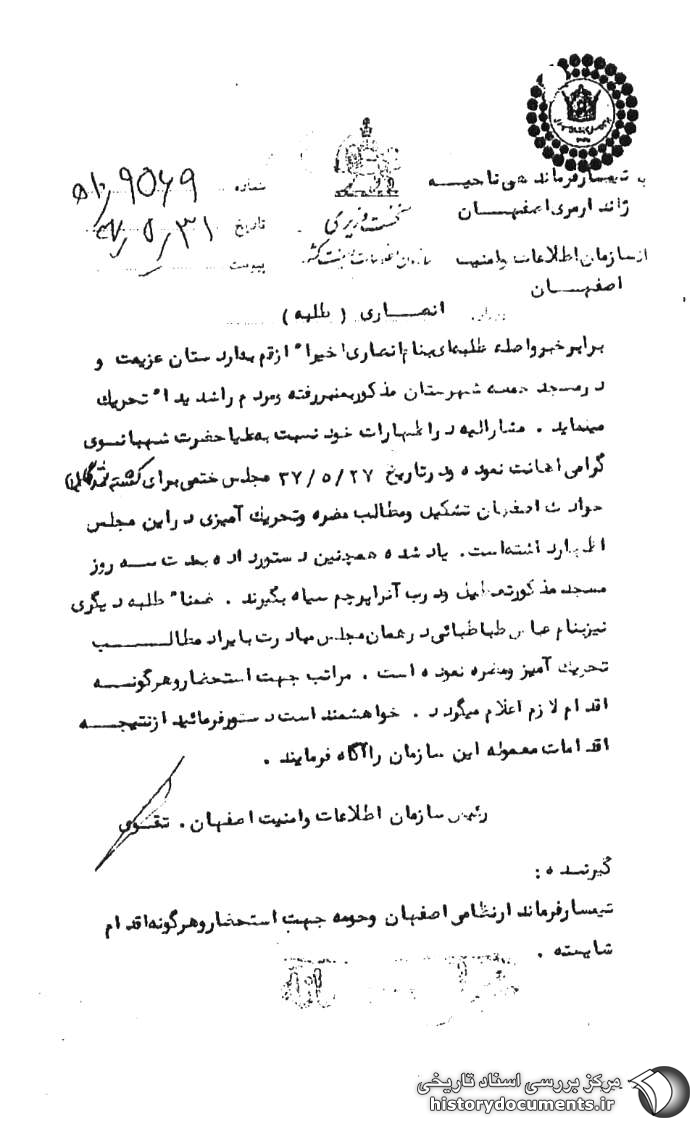 به تیمسار فرمانده هی ناحیه
ژاندارمری اصفهان
از سازمان اطلاعات و امنیت
اصفهان
نخست وزیری
سازمان اطلاعات و امنیت کشور
شماره
تاریخ ۳۱/۵/
پیوست
انصاری ( طلبه )
برابر خبر واصله طلبه‌ای بنام انصاری اخیرا" از قم به اردستان عزیمت و
در مسجد جمعه شهرستان مذکور بمنبر رفته و مردم را شدیدا" تحریک
مینماید . مشارالیه در اظهارات خود نسبت به علیاحضرت شهبانوی
گرامی اهانت نموده و در تاریخ ۳۷/۵/۲۷ مجلس ختمی برای کشته شدگان
حوادث اصفهان تشکیل و مطالب مضره و تحریک آمیزی در این مجلس
اظهار داشته است . یاد شده همچنین دستور داده بمدت سه روز
مسجد مذکور تعطیل و درب آنرا پرچم سیاه بگیرند . ضمنا" طلبه دیگری
نیز بنام عباس طباطبائی در همان مجلس مبادرت با یراد مطالب
تحریک آمیز و مضره نموده است . مراتب جهت استحضار و هرگونه
اقدام لازم اعلام میگردد . خواهشمند است دستور فرمائید از نتیجه
اقدامات معموله این سازمان را آگاه فرمایند .
رئیس سازمان اطلاعات و امنیت اصفهان . تقوی
گیرنده :
تیمسار فرماندار نظامی اصفهان و حومه جهت استحضار و هرگونه اقدام
شایسته .
مرکز بررسی اسناد تاریخی
historydocuments.ir